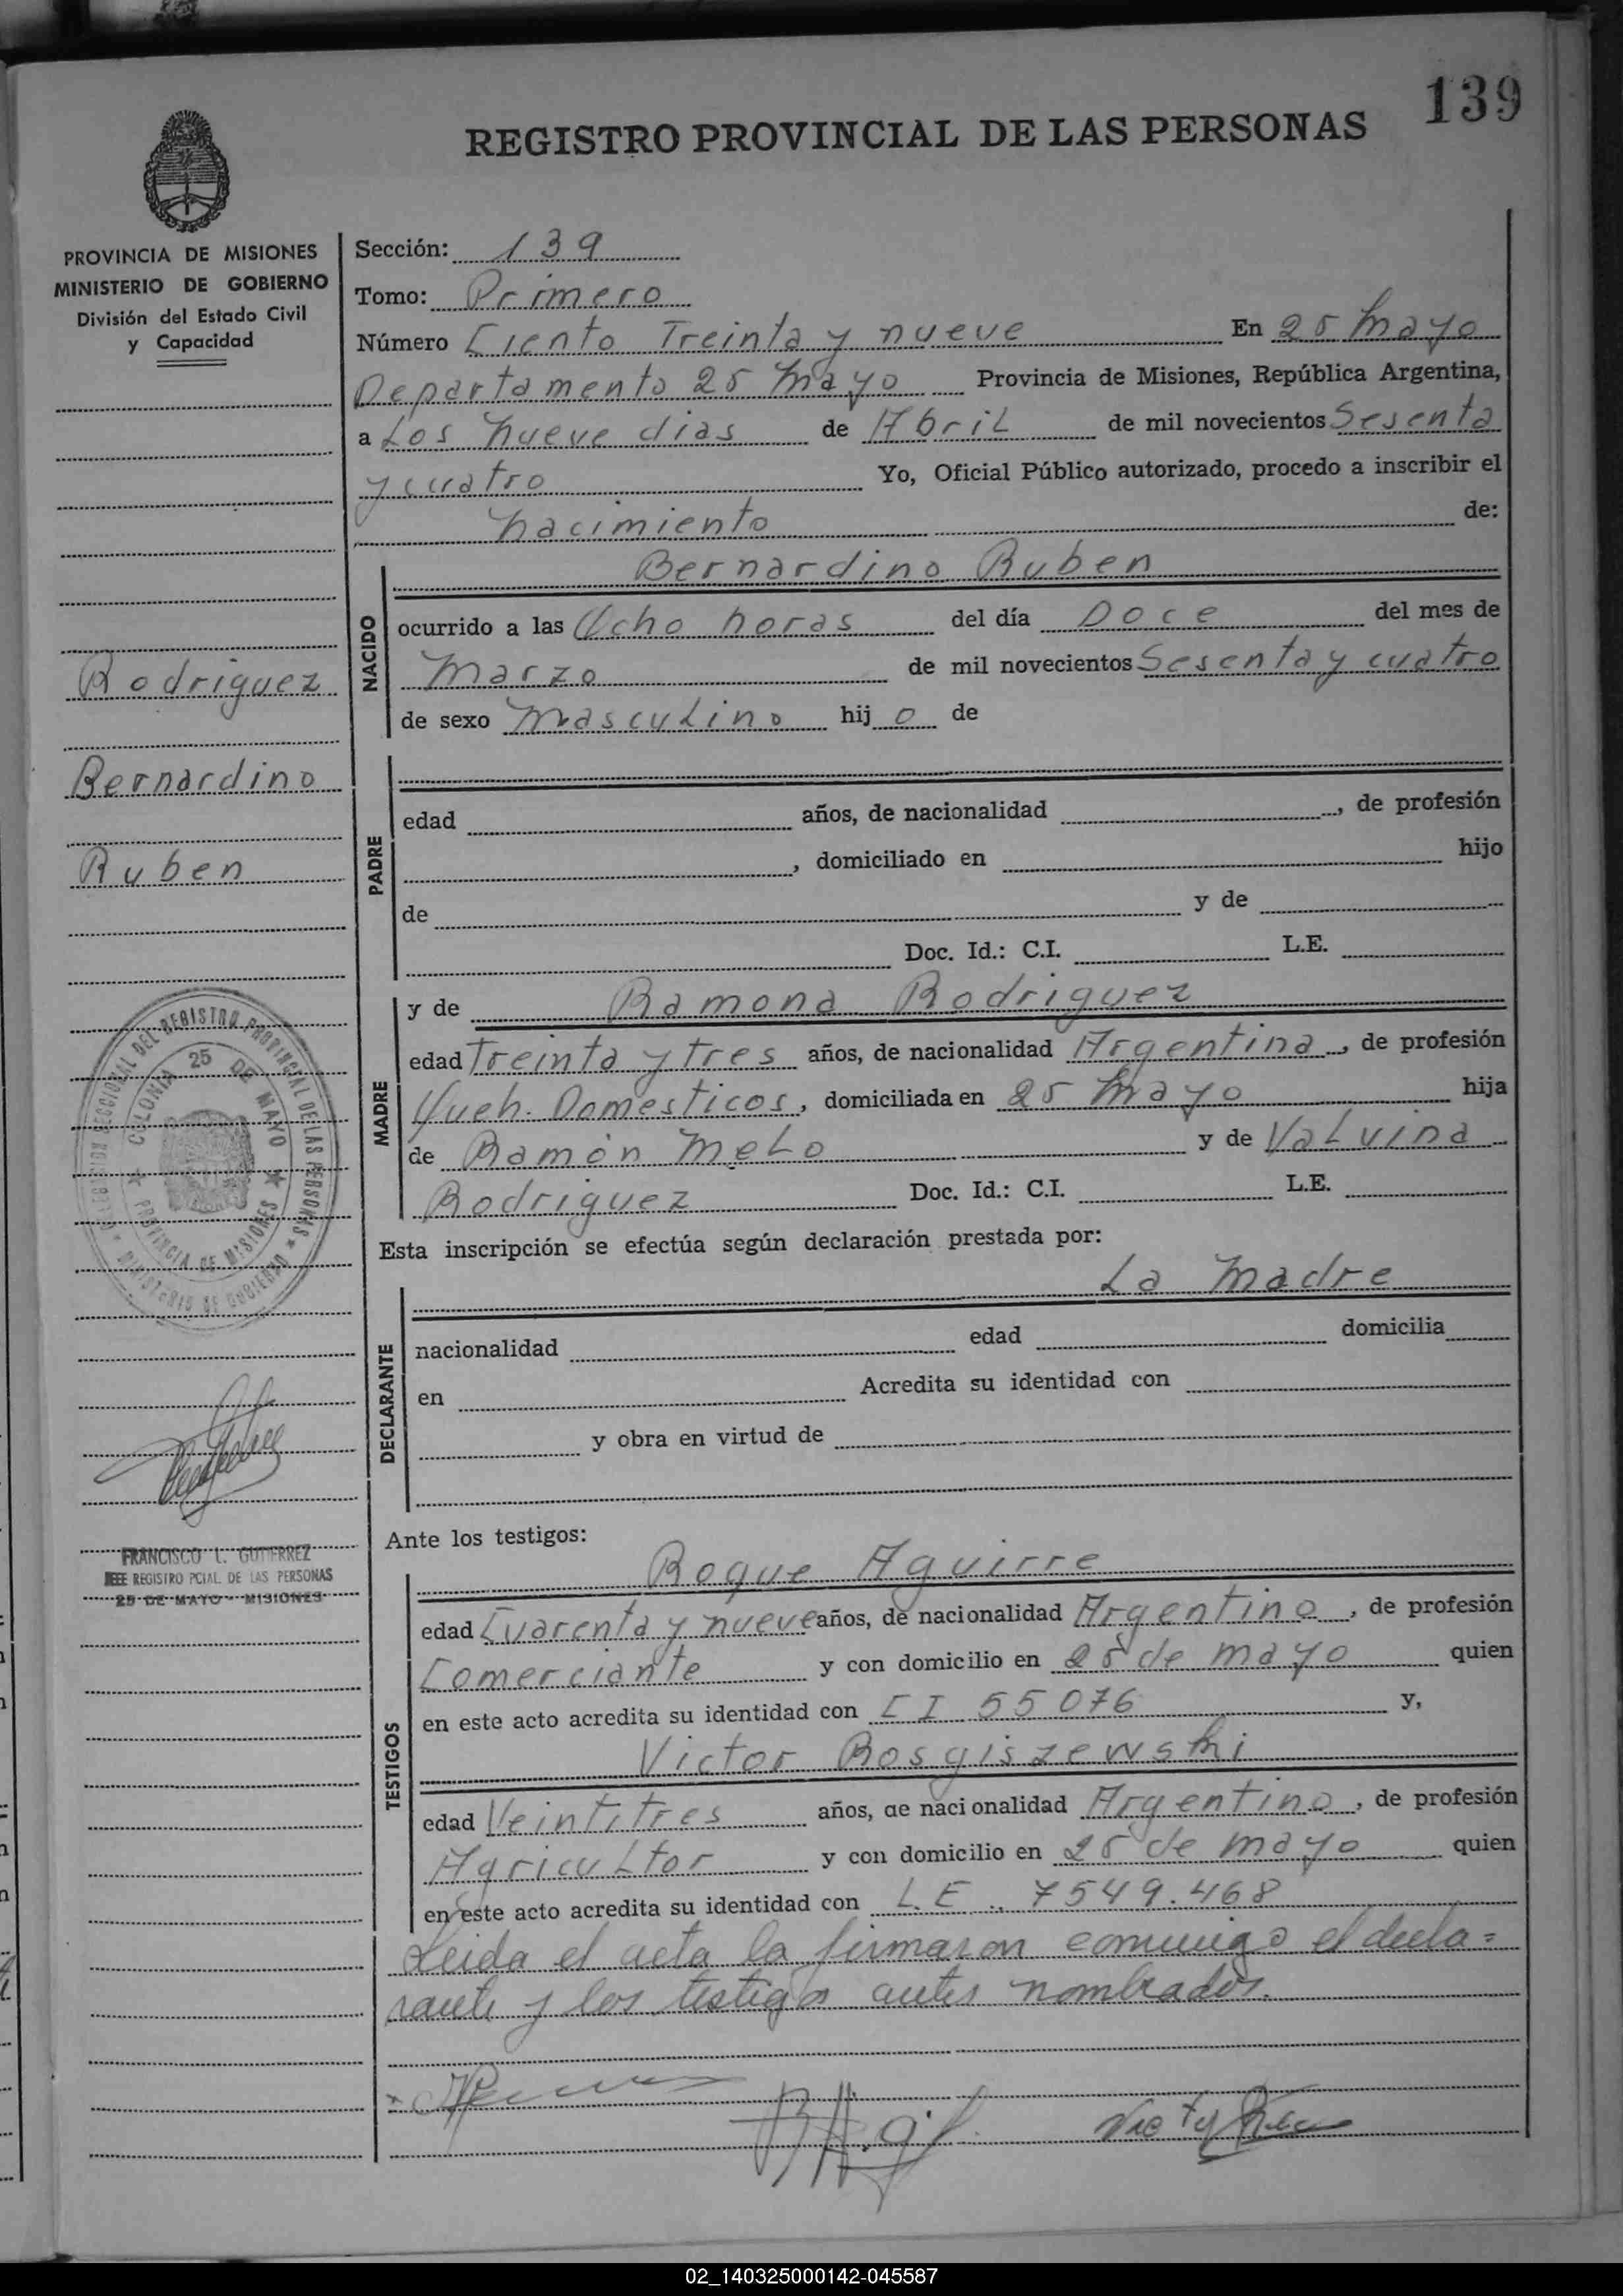 139
REGISTRO PROVINCIAL DE LAS PERSONAS
PROVINCIA DE MISIONES
MINISTERIO DE GOBIERNO
División del Estado Civil
y Capacidad
Sección: 139
Tomo: Primero
Número Ciento Treinta y nueve En 25 Mayo
Departamento 25 Mayo Provincia de Misiones, República Argentina,
a Los Nueve dias de Abril de mil novecientos Sesenta
y cuatro Yo, Oficial Público autorizado, procedo a inscribir el
nacimiento de:
Rodriguez
Bernardino
Ruben
NACIDO
Bernardino Ruben
ocurrido a las Ocho horas del día Doce del mes de
Marzo de mil novecientos Sesenta y cuatro
de sexo Masculino hijo de
PADRE
edad años, de nacionalidad , de profesión
, domiciliado en hijo
de y de
Doc. Id.: C.I. L.E.
MADRE
y de Ramona Rodriguez
edad Treinta y tres años, de nacionalidad Argentina, de profesión
Domesticos, domiciliada en 25 Mayo hija
de Ramón Melo y de Valvina
Rodriguez Doc. Id.: C.I. L.E.
DELEGACION SECCIONAL DEL REGISTRO PROVINCIAL DE LAS PERSONAS
MINISTERIO DE GOBIERNO
COLONIA 25 DE MAYO
PROVINCIA DE MISIONES
Esta inscripción se efectúa según declaración prestada por:
La Madre
DECLARANTE
nacionalidad edad domicilia
en Acredita su identidad con
y obra en virtud de
FRANCISCO L. GUTIERREZ
JEFE REGISTRO PCIAL. DE LAS PERSONAS
25 DE MAYO - MISIONES
Ante los testigos:
TESTIGOS
Roque Aguirre
edad Cuarenta y nueve años, de nacionalidad Argentino, de profesión
Comerciante y con domicilio en 25 de mayo quien
en este acto acredita su identidad con C I 55076 y,
Victor Bosgiszewski
edad Veintitres años, de nacionalidad Argentino, de profesión
Agricultor y con domicilio en 25 de mayo quien
en este acto acredita su identidad con L.E. 7549.468
Leida el acta la firmaron conmigo el decla=
rante y los testigos antes nombrados.
02_140325000142-045587